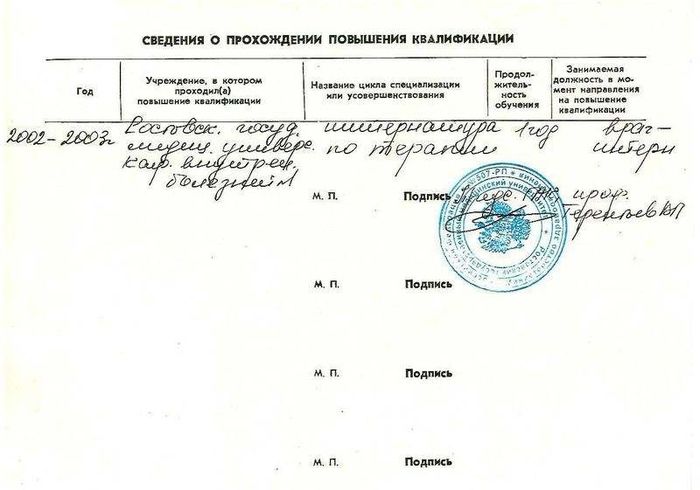 СВЕДЕНИЯ О ПРОХОЖДЕНИИ ПОВЫШЕНИЯ КВАЛИФИКАЦИИ
Год
Учреждение, в котором
проходил(а)
повышение квалификации
Название цикла специализации
или усовершенствования
Продол-
житель-
ность
обучения
Занимаемая
должность в мо-
мент направления
на повышение
квалификации
2002-2003г Ростовск. госуд. интернатура 1 год врач-
медиц. универс. по терапии интерн
каф. внутрен.
болезней
М. П. Подпись проф.
Терентьев ВП
М. П. Подпись
М. П. Подпись
М. П. Подпись